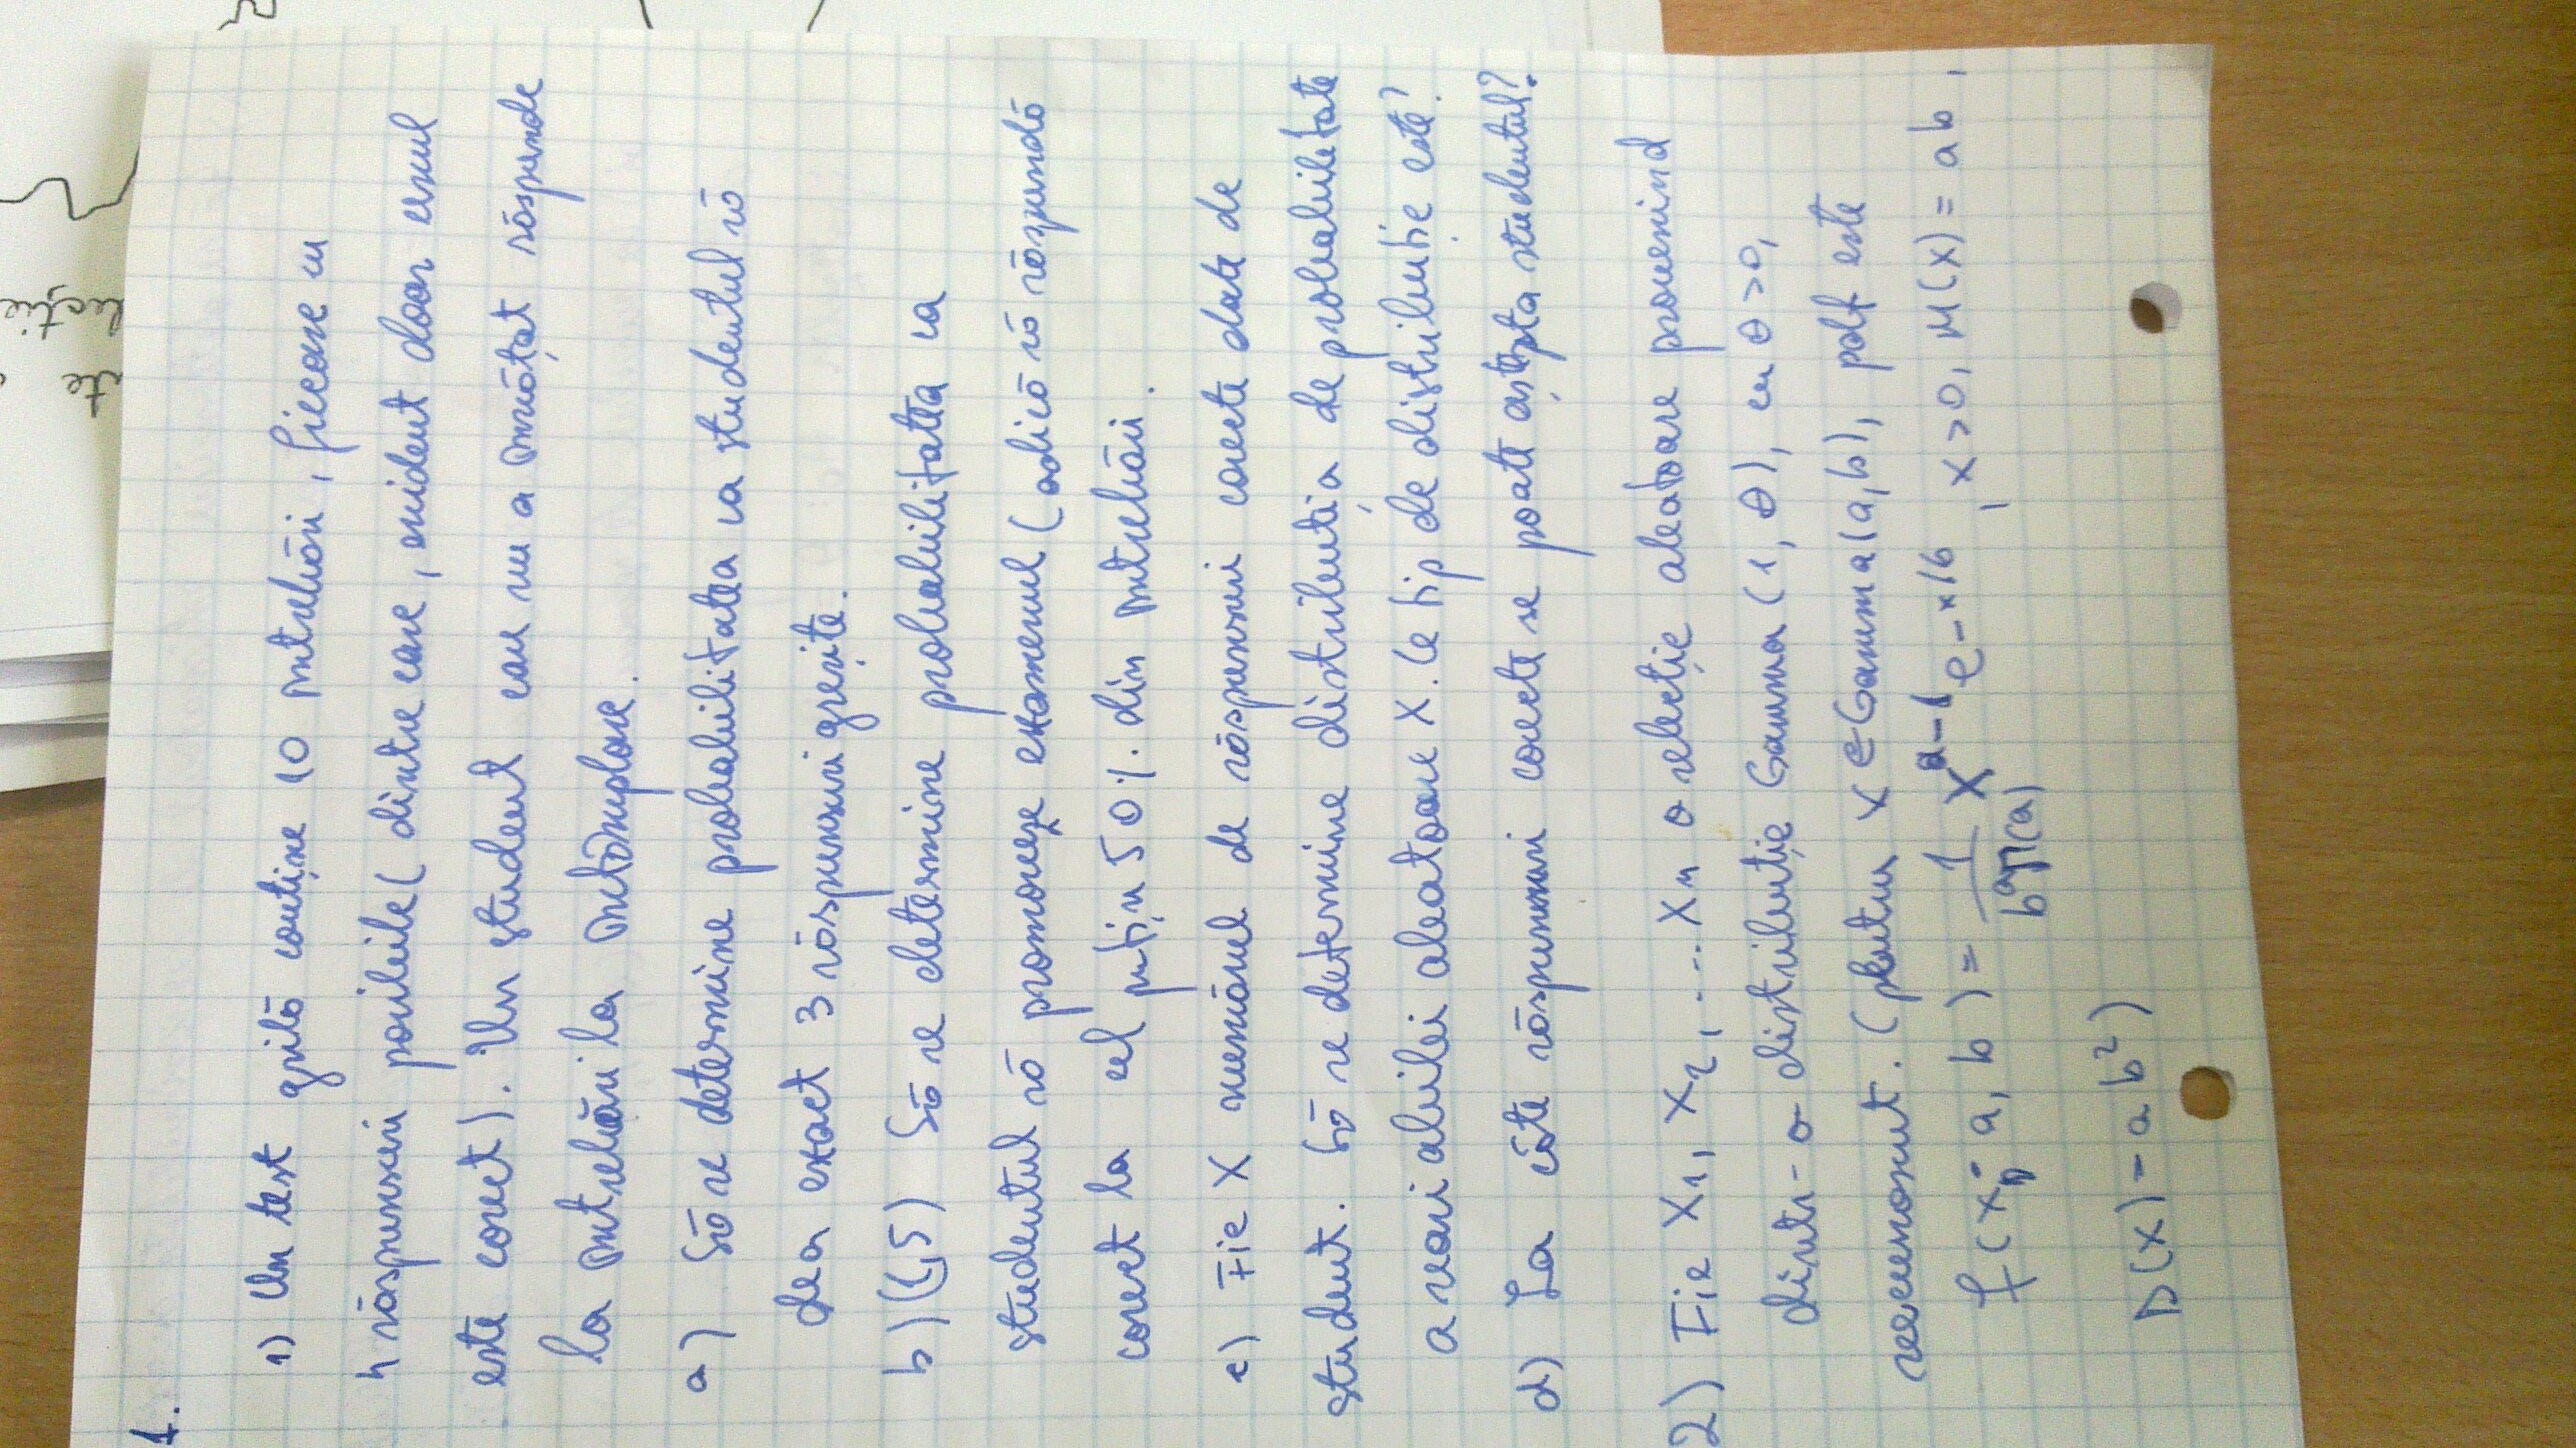 te
lecție
1.
1) Un test grilă conține 10 întrebări, fiecare cu
4 răspunsuri posibile (dintre care, evident doar unul
este corect). Un student care nu a învățat răspunde
la întrebări la întâmplare.
a) Să se determine probabilitatea ca studentul să
dea exact 3 răspunsuri greșite.
b) (1,5) Să se determine probabilitatea ca
studentul să promoveze examenul (adică să răspundă
corect la cel puțin 50% din întrebări.
c) Fie X numărul de răspunsuri corecte date de
student. Să se determine distribuția de probabilitate
a variabilei aleatoare X. Ce tip de distribuție este?
d) La câte răspunsuri corecte se poate aștepta studentul?
2) Fie X1, X2, .... Xn o selecție aleatoare provenind
dintr-o distribuție Gamma (1, θ), cu θ>0,
necunoscut. (pentru X ∈ Gamma(a,b), pdf este
f(x; a, b) = 1/(b^a Γ(a)) x^(a-1) e^(-x/b), x>0, M(X) = ab,
D(X) = ab²)